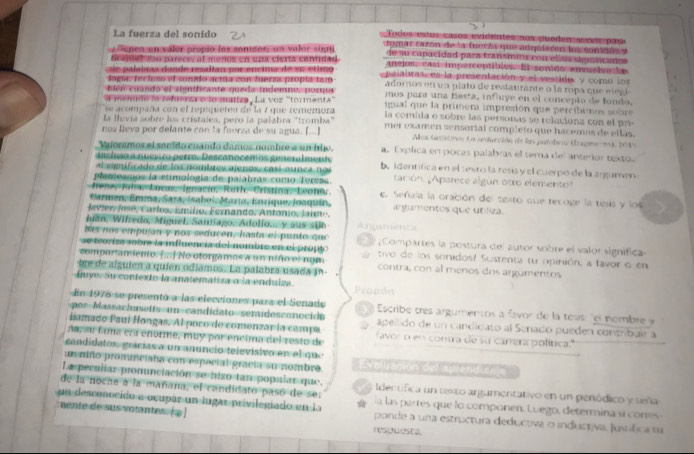 La fuerza del sonido
¿Tienen un valor propio los sonidos, un valor signi-
ficante? Eso parece, al menos en una cierta cantidad
de palabras donde resaltan por encima de su etimo-
logía. Incluso el sonido actúa con fuerza propia tam-
bién cuando el significante queda indemne, porque
a menudo lo refuerza o lo matiza. La voz "tormenta"
se acompaña con el repiqueteo de la t que rememora
la lluvia sobre los cristales, pero la palabra "tromba"
nos lleva por delante con la fuerza de su agua. [...]
Valoramos el sonido cuando damos nombre a un hijo,
incluso a nuestro perro. Desconocemos generalmente
el significado de los nombres ajenos, casi nunca nos
planteamos la etimología de palabras como Teresa,
Irene, Julia, Lucas, Ignacio, Ruth, Cristina, Leonor,
Carmen, Emma, Sara, Isabel, Marta, Enrique, Joaquín,
Javier, José, Carlos, Emilio, Fernando, Antonio, Jaime,
Juan, Wilfredo, Miguel, Santiago, Adolfo... y sus síla-
bas nos empujan y nos seducen, hasta el punto que
se teoriza sobre la influencia del nombre en el propio
comportamiento. [...] No otorgamos a un niño el nom-
bre de alguien a quien odiamos. La palabra usada in-
fluye. Su contexto la anatematiza o la endulza.
En 1978 se presentó a las elecciones para el Senado
por Massachusetts un candidato semidesconocido
llamado Paul Hongas. Al poco de comenzar la campa-
ña, su fama era enorme, muy por encima del resto de
candidatos, gracias a un anuncio televisivo en el que
un niño pronunciaba con especial gracia su nombre.
La peculiar pronunciación se hizo tan popular que,
de la noche a la mañana, el candidato pasó de ser
un desconocido a ocupar un lugar privilegiado en la
mente de sus votantes. [...]
Todos estos casos evidentes nos pueden servir para
tomar razón de la fuerza que adquieren los sonidos y
de su capacidad para transmitir con ellos significados
anejos, casi imperceptibles. El sonido envuelve las
palabras, en la presentación y el vestido y como los
adornos en un plato de restaurante o la ropa que elegi-
mos para una fiesta, influye en el concepto de fondo,
igual que la primera impresión que percibimos sobre
la comida o sobre las personas se relaciona con el pri-
mer examen sensorial completo que hacemos de ellas.
a. Explica en pocas palabras el tema del anterior texto.
b. Identifica en el texto la tesis y el cuerpo de la argumen-
tación. ¿Aparece algún otro elemento?
c. Señala la oración del texto que recoge la tesis y los
argumentos que utiliza.
Argumenta
¿Compartes la postura del autor sobre el valor significa-
tivo de los sonidos? Sustenta tu opinión, a favor o en
contra, con al menos dos argumentos.
Propón
Escribe tres argumentos a favor de la tesis "el nombre y
apellido de un candidato al Senado pueden contribuir a
favor o en contra de su carrera política."
Evaluación del aprendizaje
Identifica un texto argumentativo en un periódico y seña-
la las partes que lo componen. Luego, determina si corres-
ponde a una estructura deductiva o inductiva. Justifica tu
respuesta.